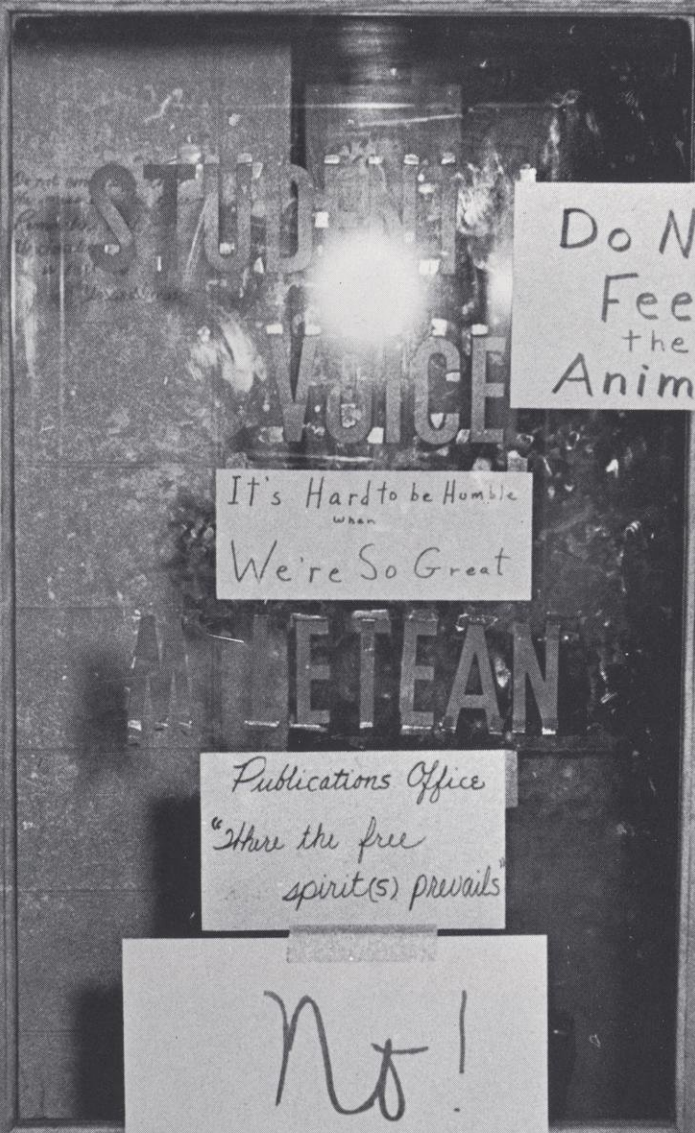 STUDENT
VOICE
Do N
Fee
the
Anim
It's Hard to be Humble
when
We're So Great
MELETEAN
Publications Office
"Where the free
spirit(s) prevails"
No!